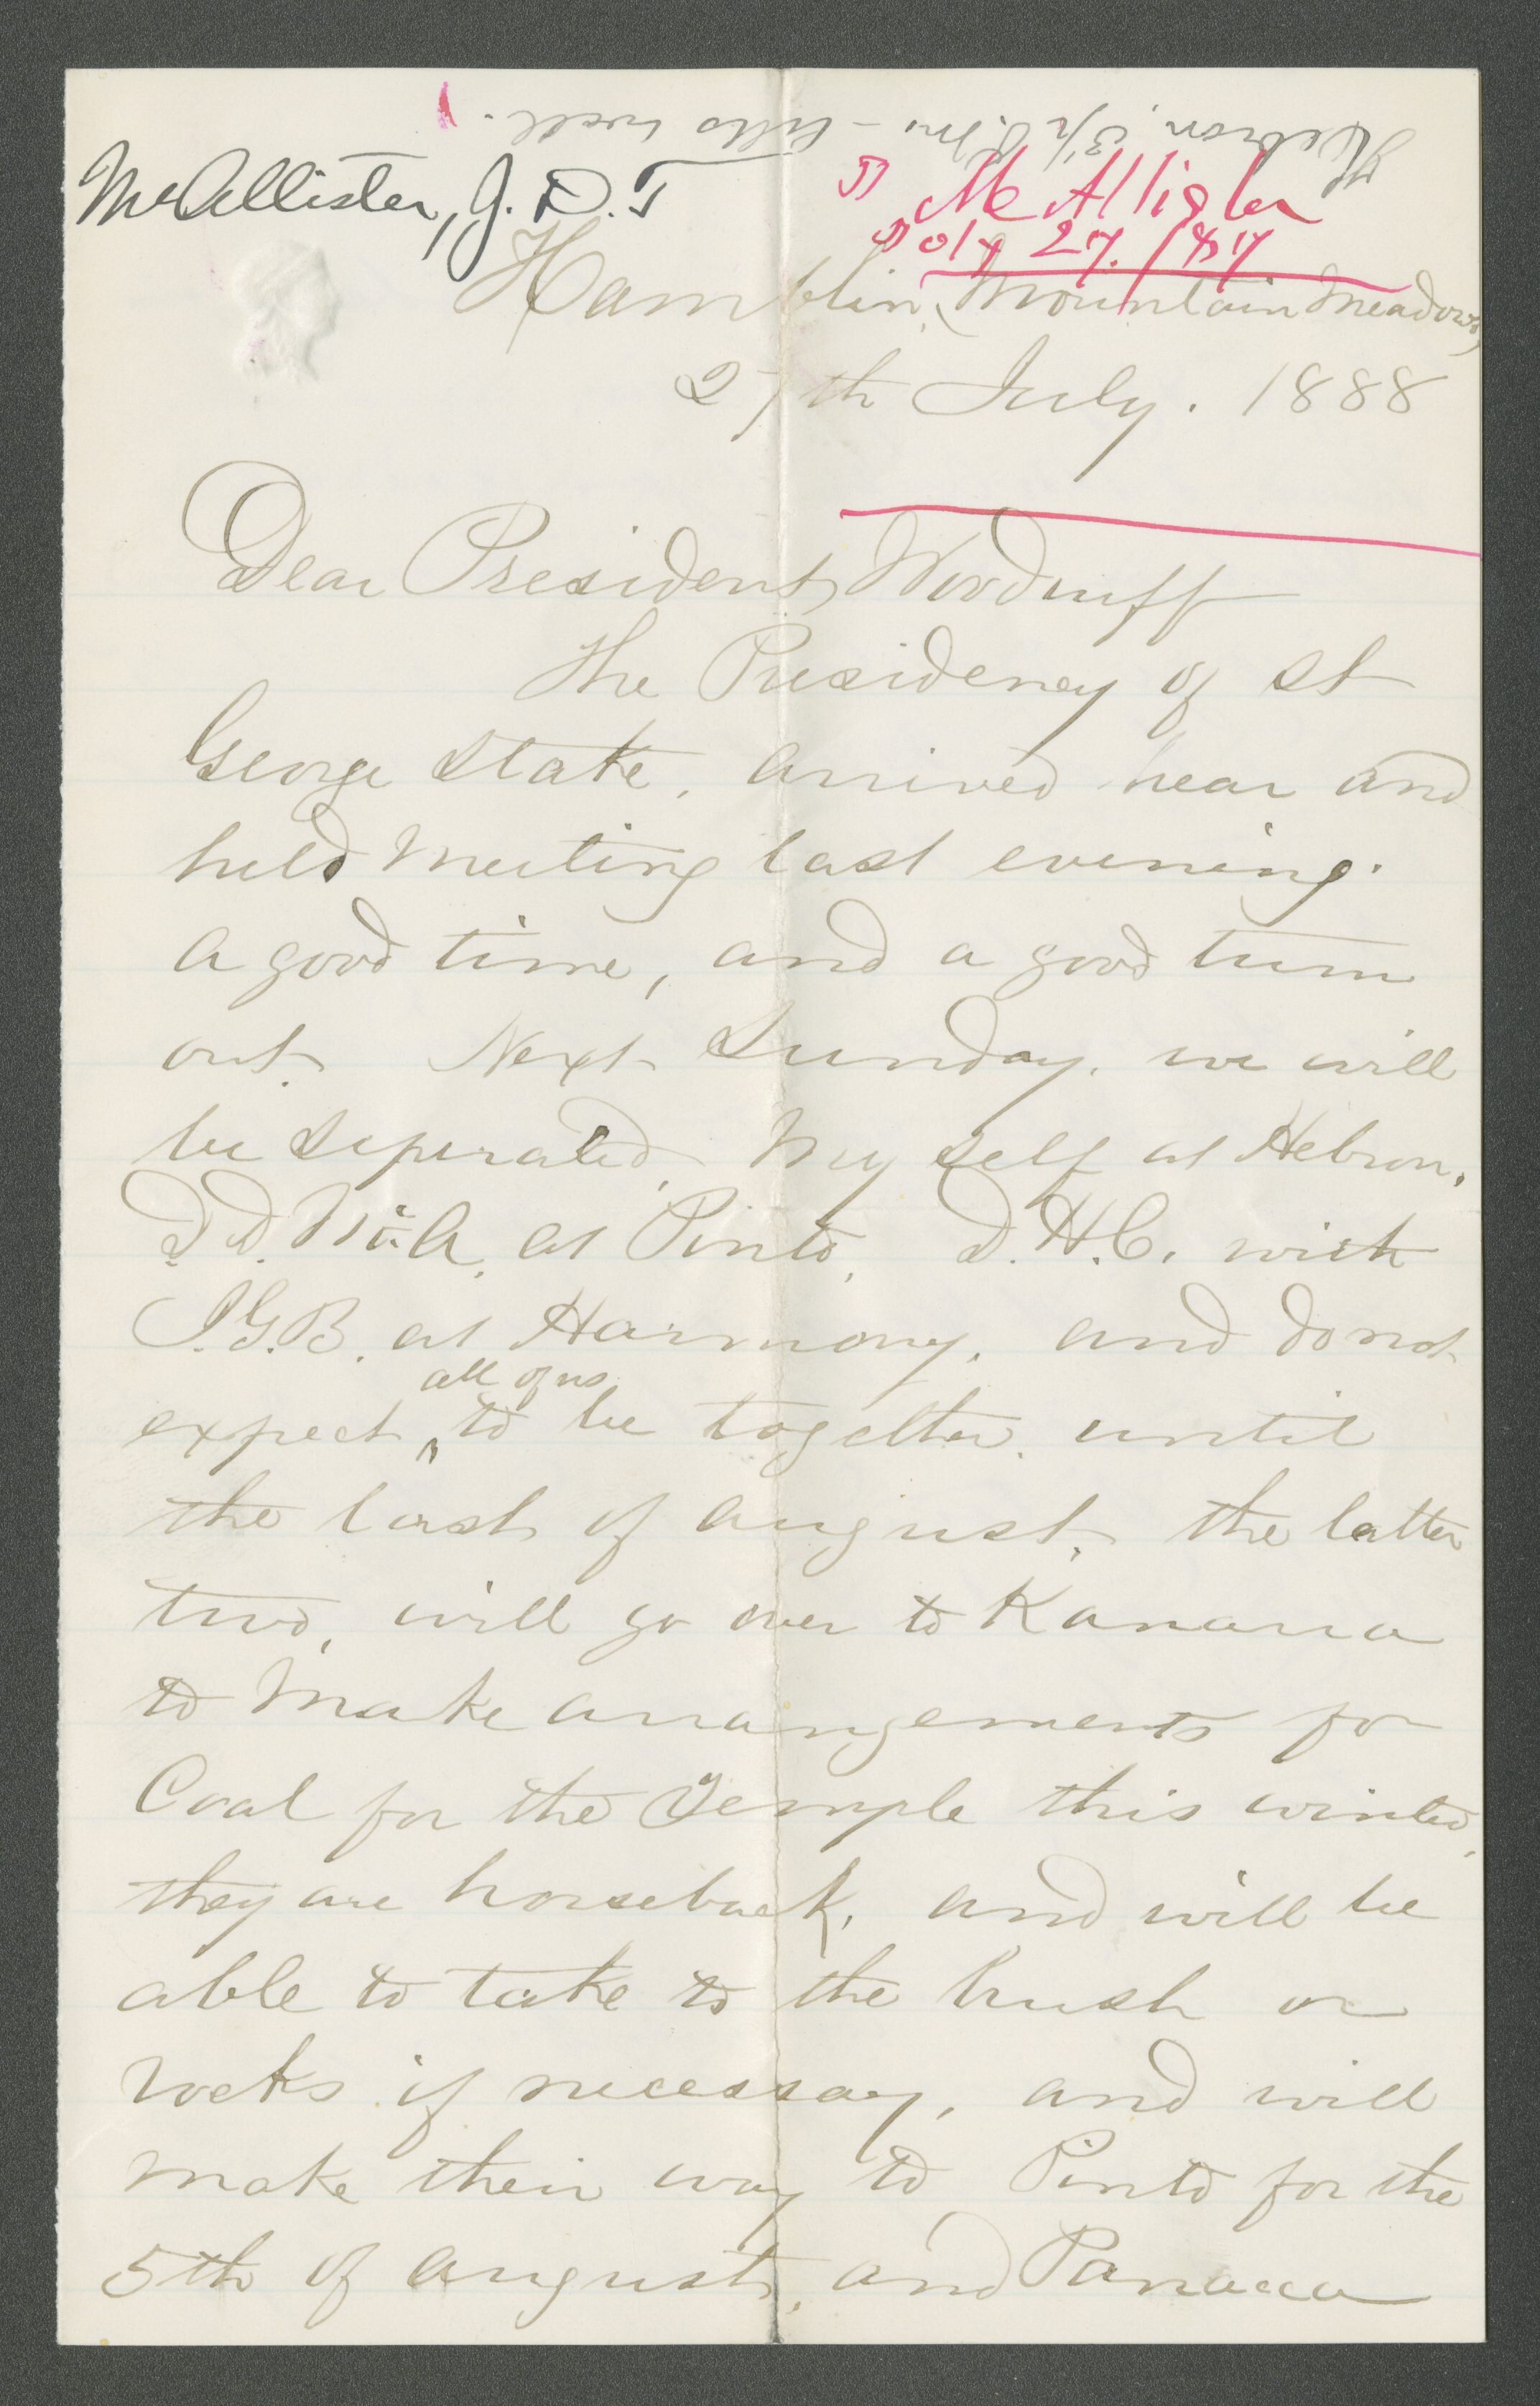 Hebron, 3 1/2 P.M. - all's well.
McAllister, J. D. T
McAllister
July 27. 1887
Hamblin, (Mountain Meadows)
27th July. 1888
Dear President Woodruff
The Presidency of St
George Stake, arrived hear and
held Meeting last evening.
a good time, and a good turn
out. Next Sunday. we will
be seperated, My self at Hebron.
D. D. McA. at Pinto, D. H. C. with
J. G. B. at Harmony. and do not
all of us
expect ^ to be together. until
the last of august. the latter
two, will go over to Kanarra
to Make arrangements for
Coal for the Temple this winter,
they are horseback, and will be
able to take to the brush or
rocks if necessay, and will
make their way to Pinto for the
5th of august, and Panacca